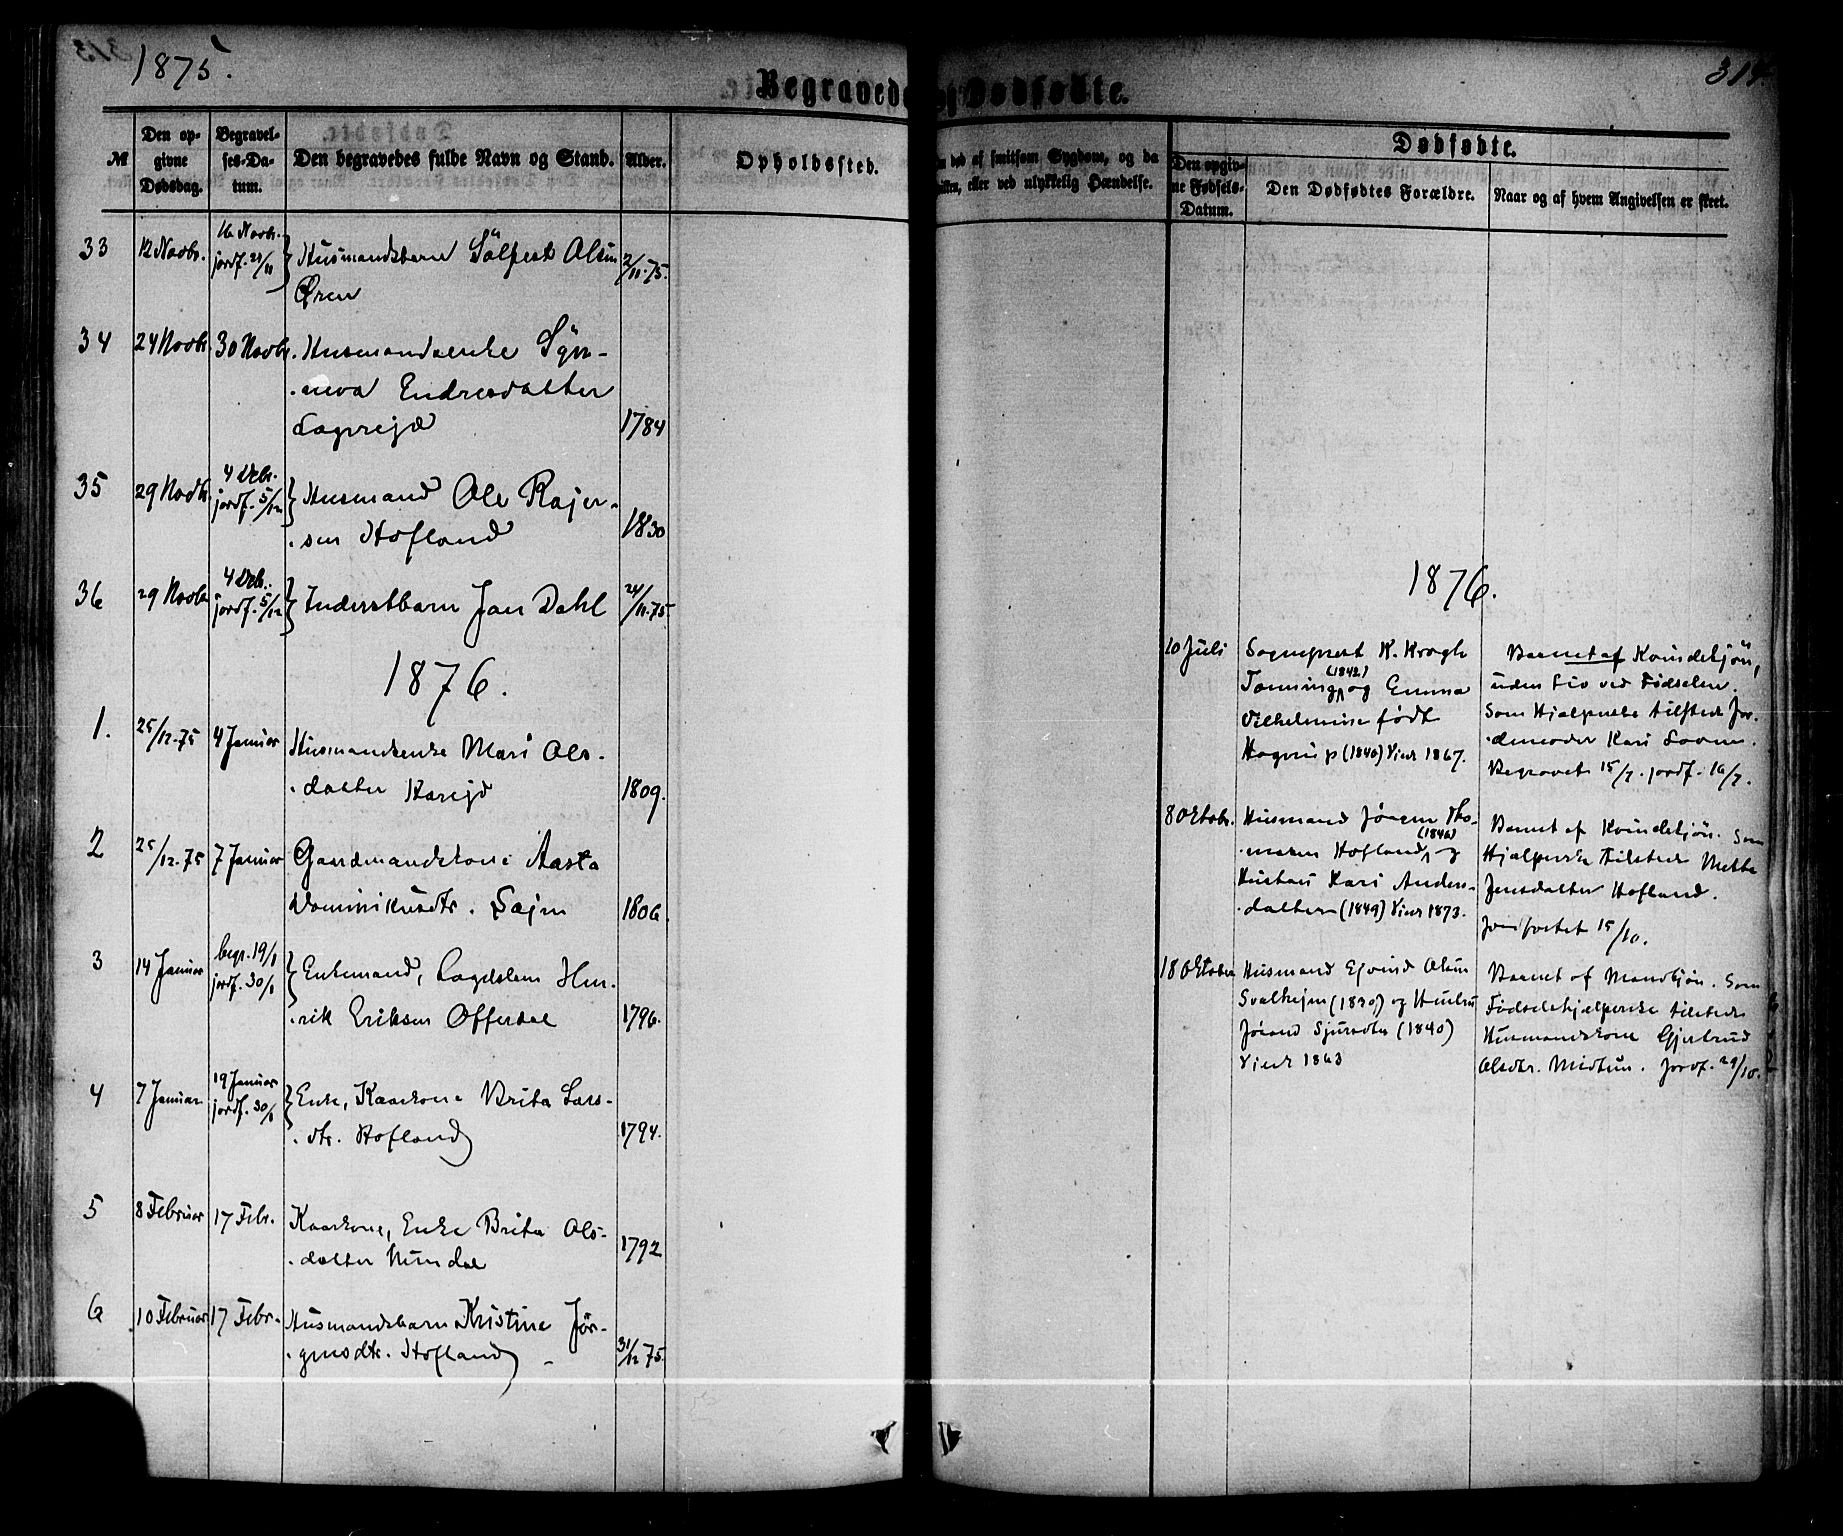 1875.
314.
Begravede og Dødfødte.
№
Den opgivne Dødsdag.
Begravelses-Datum.
Den begravedes fulde Navn og Stand.
Alder.
Opholdssted.
ved af smitsom Sygdom, og da
eller ved ulykkelig Hændelse.
Dødfødte.
Den opgivne Fødsels-Datum.
Den Dødfødtes Forældre.
Naar og af hvem Angivelsen er skeet.
33 12 Novbr. 16 Novbr. jordf. 21/11 Husmandsbarn Sölfest Olsen 2/11.75.
Øren
34 24 Novbr. 30 Novbr. Husmandsenke Syn-
neva Endresdatter
Lægreid 1784
35 29 Novbr 4 Debr. jordf. 5/12 Husmand Ole Rajer-
sen Hofland 1830
36 29 Novbr 4 Debr. jordf. 5/12 Inderstbarn Jan Dahl 24/11.75.
1876.
1. 25/12.75 4 Januar Husmandsenke Mari Ols-
datter 1809.
2 25/12.75 7 Januar Gaardmandskone Aasta
Dominikusdtr. 1806.
3 14 Januar begr. 19/1 jordf. 30/1 Enkemand, Lægdslem Hen-
rik Eriksen Offerdal 1796.
4 7 Januar 19 Januar jordf. 30/1 Enke, Kaarkone Brita Lars-
dtr. Hofland 1794.
5 8 Februar 17 Febr. Kaarkone, Enke Brita Ols-
datter Nundal 1792
6 10 Februar 17 Febr. Husmandsbarn Kristine Jør-
gensdtr. Hofland 31/12 75.
1876.
10 Juli Sognepræst K. Krogh
Tonning (1842) og Emma
Vilhelmine født
Hagerup (1840) Viede 1867.
Barnet af Kvindekjön,
uden Liv ved Födselen.
Som Hjælperske tilstede Jor-
demoder Kari
Begravet 15/7. jordf. 16/7.
8 Oktobr. Husmand Jørgen Tho-
massen Hofland (1846) og
Hustru Kari Anders-
datter (1849) Viede 1873.
Barnet af Kvindekjön. Som
Hjælperske tilstede Mette
Jensdatter Hofland.
Jordfæstet 15/10.
18 Oktober Husmand Ejvind Olsen
Svalhejm (1830) og Hustru
Jörand Sjursdtr (1840)
Viede 1863
Barnet af Mandkjön. Som
Fødselshjælperske tilstede
Husmandskone Gjertrud
Olsdtr. Midtun. Jordf. 29/10.